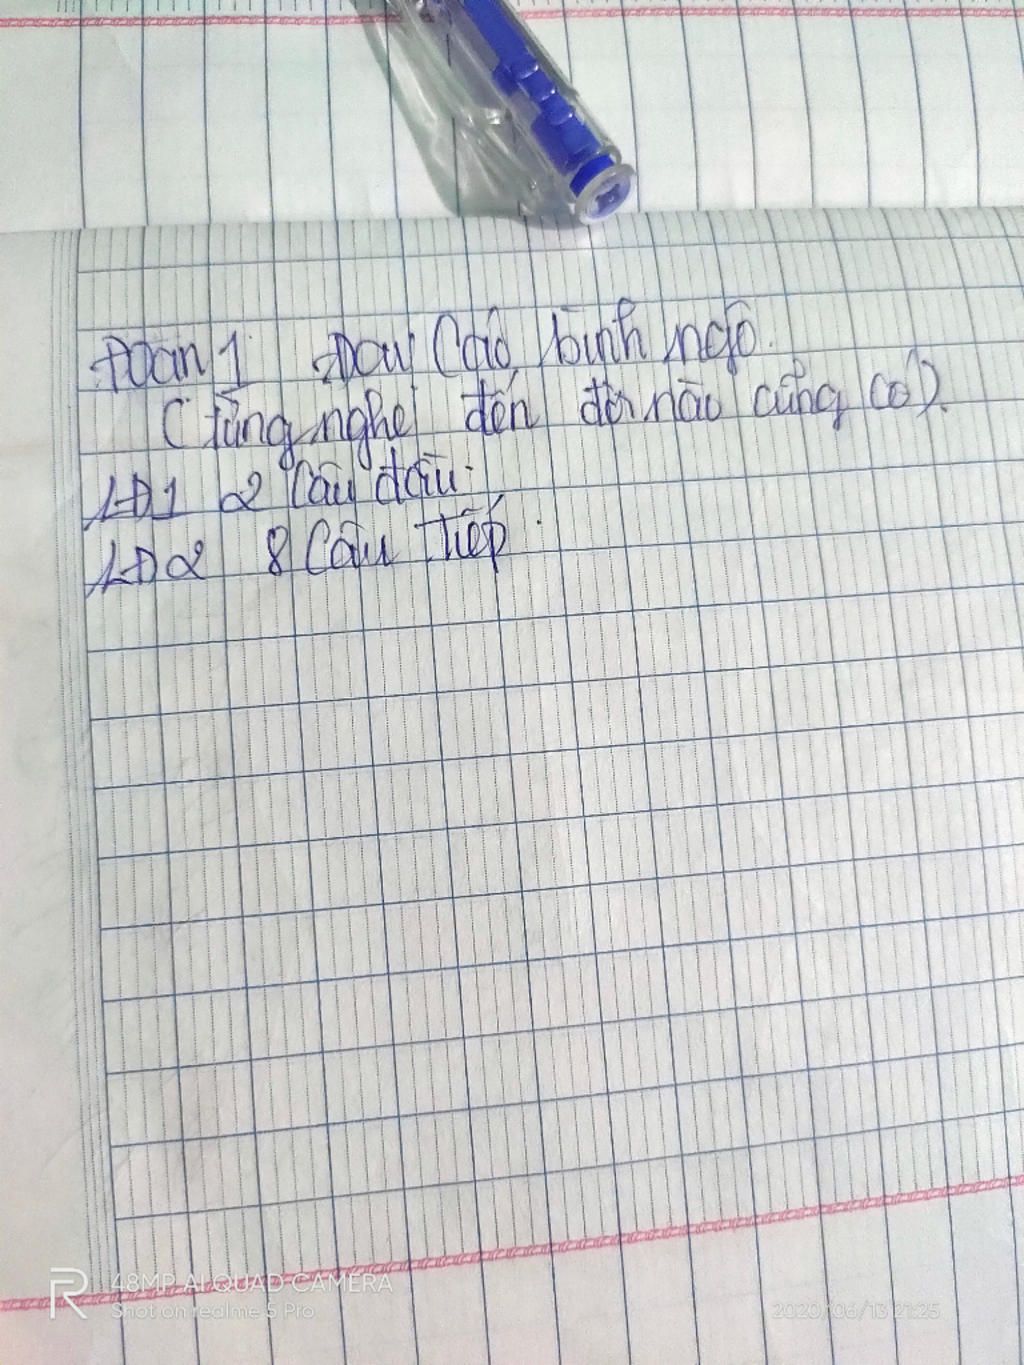 Đoạn 1 Đại Cáo bình ngô.
(Từng nghe đến đời nào cũng có).
LĐ1 2 Câu đầu.
LĐ2 8 Câu Tiếp.
48MP AI QUAD CAMERA
Shot on realme 5 Pro
2020/06/13 21:25